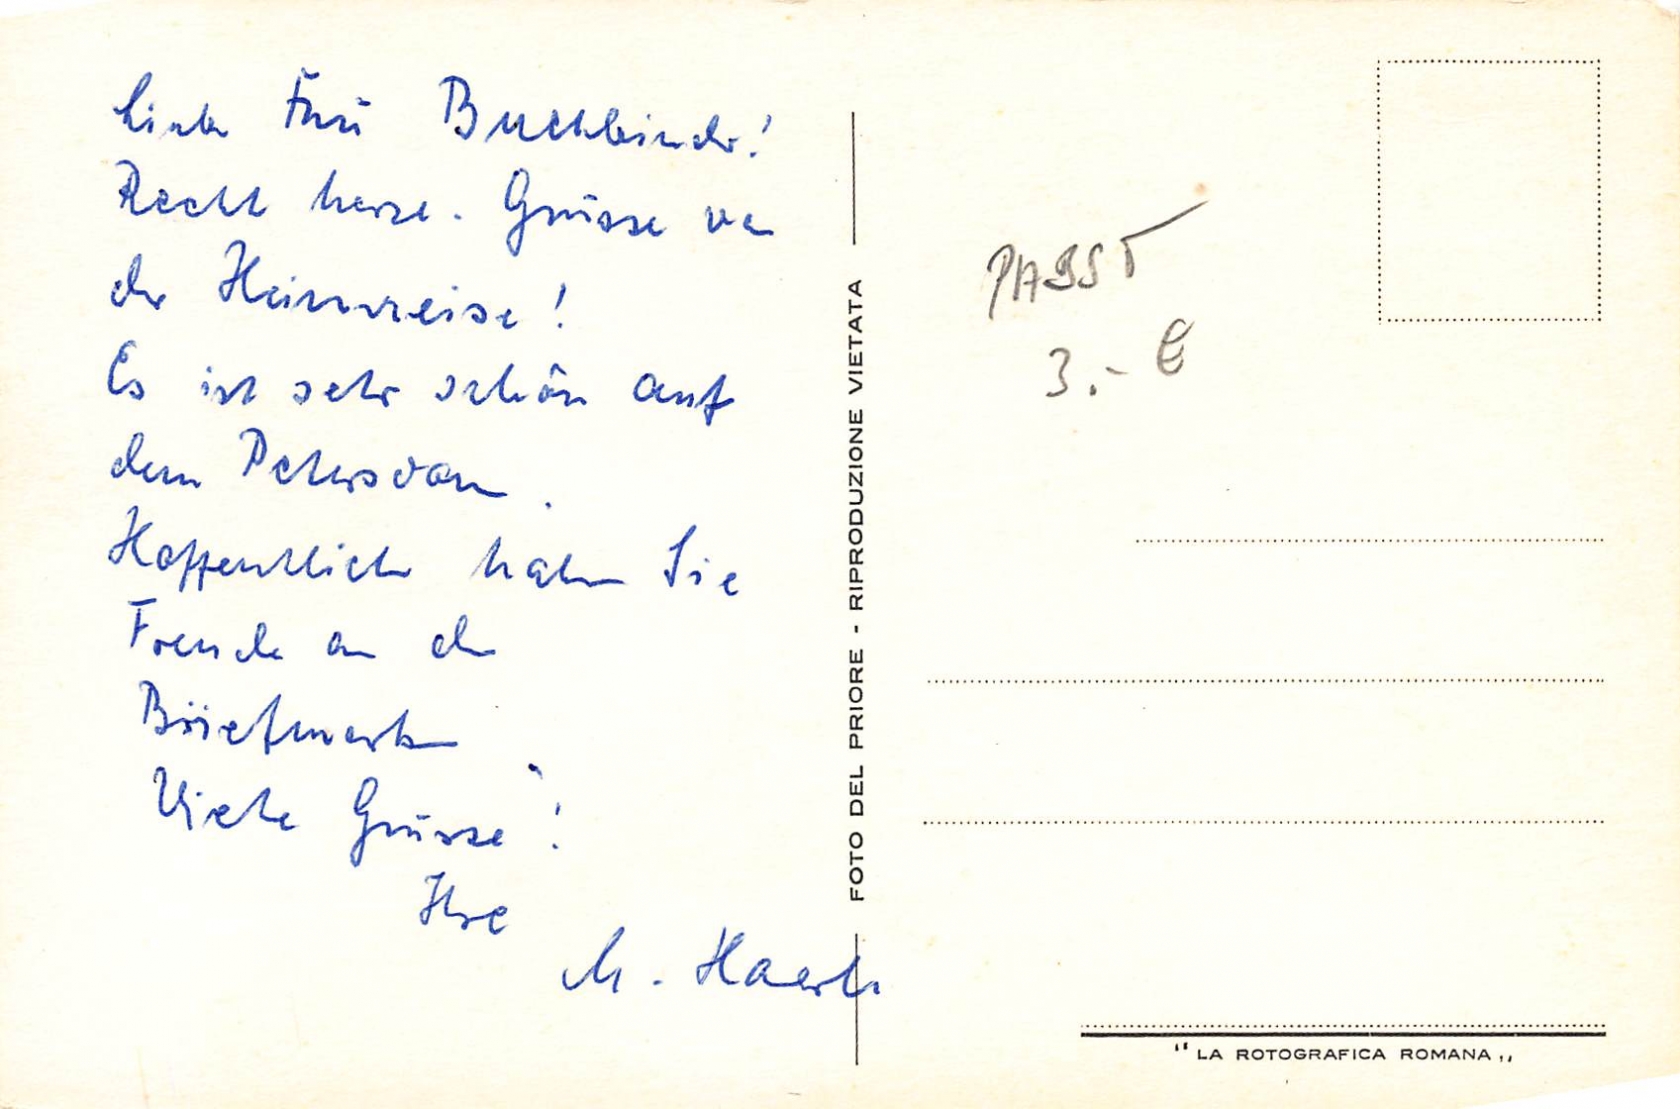 Liebe Frau Buchbinder!
Recht herzl. Grüsse von
der Heimreise!
Es ist sehr schön auf
dem Petersdom.
Hoffentlich haben Sie
Freude an den
Briefmarken
Viele Grüsse!
Ihre
M. Haerle
FOTO DEL PRIORE - RIPRODUZIONE VIETATA
PABST
3.- €
"LA ROTOGRAFICA ROMANA„